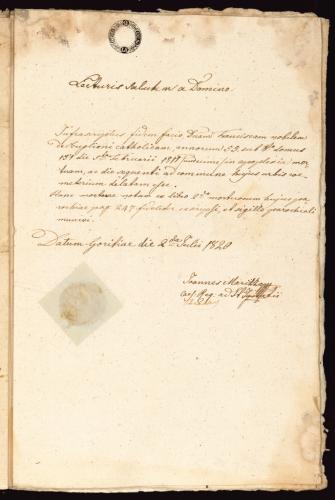 Lecturis salutem a Domino
Infrascriptus fidem facio Dnam Franciscam nobilem
de catholicam, annorum 53 sub No domus
die 5ta Februarii apoplexia mor-
tuam, ac die sequenti ad commune hujus urbis coe-
meterium delatam esse.
Hanc mortuae notam ex libro mortuorum hujus pa-
rochiae pag 247 fideliter et sigillo parochiali
munivi.
Datum Goritiae die 2da Julii 1820
Joannes
ad St